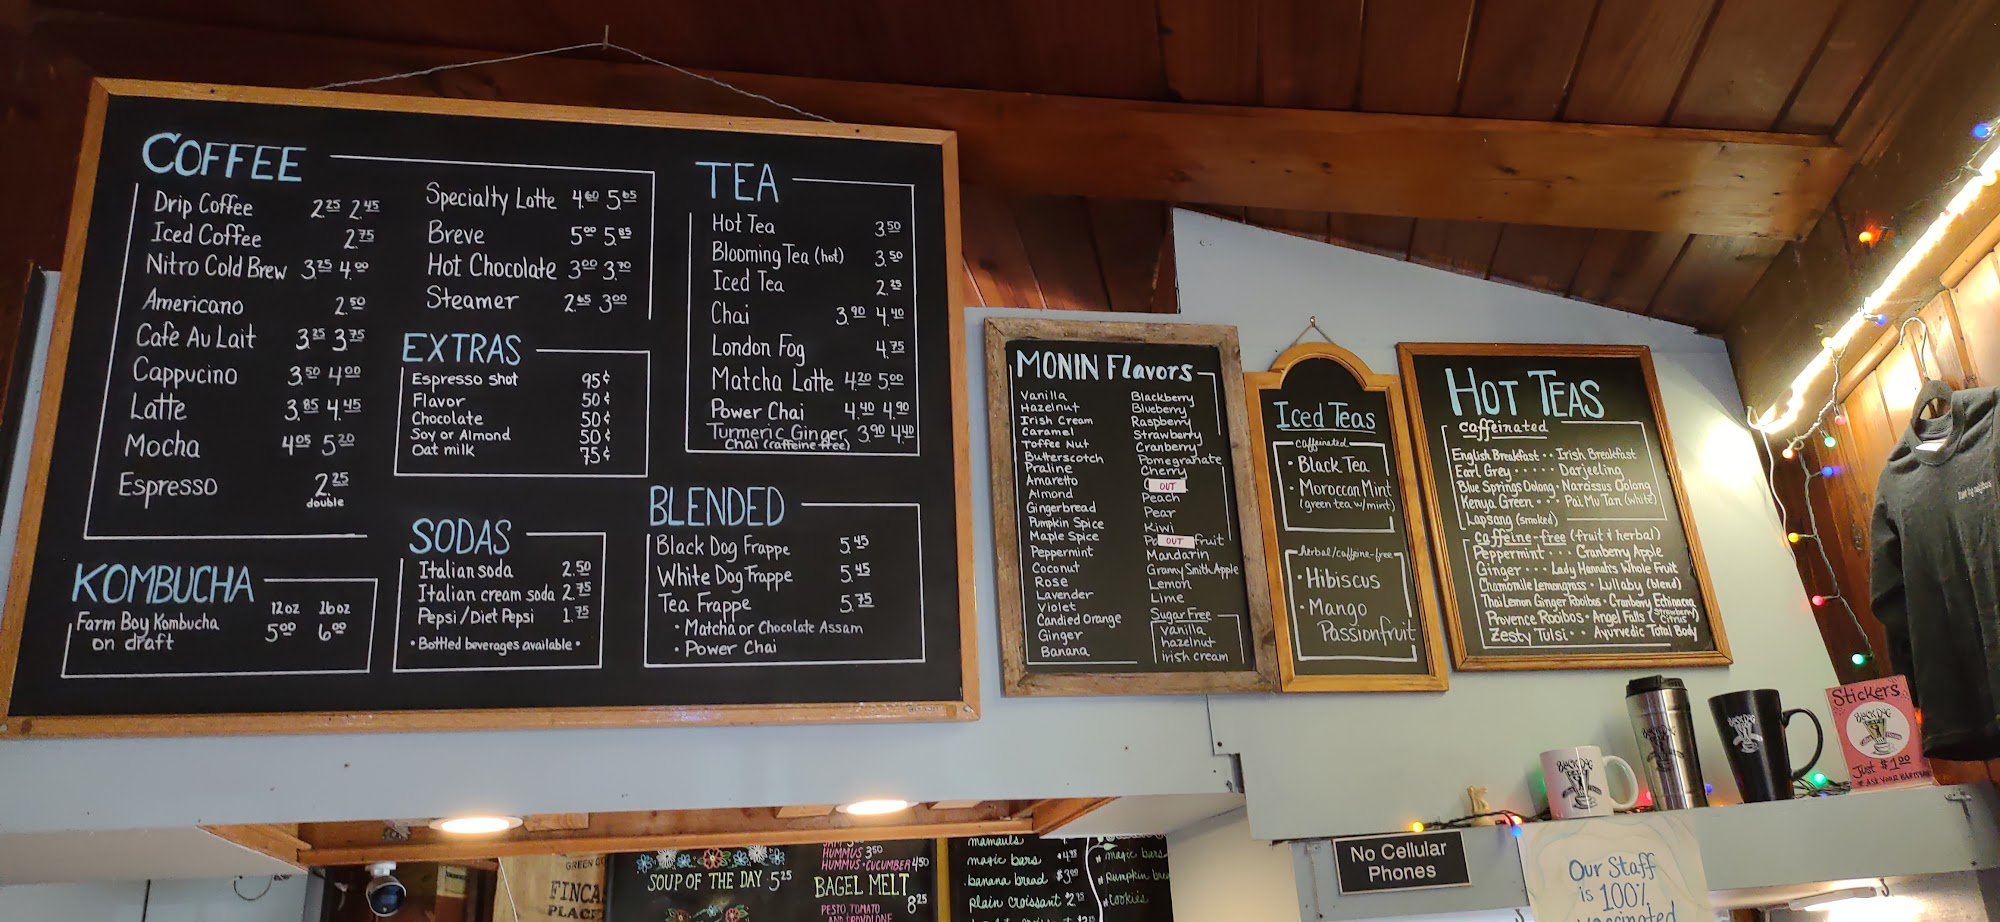 COFFEE
Drip Coffee 2.25 2.45
Iced Coffee 2.75
Nitro Cold Brew 3.25 4.00
Americano 2.50
Cafe Au Lait 3.25 3.75
Cappucino 3.50 4.00
Latte 3.85 4.45
Mocha 4.05 5.20
Espresso 2.25
double
Specialty Latte 4.60 5.65
Breve 5.00 5.85
Hot Chocolate 3.00 3.70
Steamer 2.65 3.00
EXTRAS
Espresso shot 95¢
Flavor 50¢
Chocolate 50¢
Soy or Almond 50¢
Oat milk 75¢
TEA
Hot Tea 3.50
Blooming Tea (hot) 3.50
Iced Tea 2.25
Chai 3.90 4.40
London Fog 4.75
Matcha Latte 4.20 5.00
Power Chai 4.40 4.90
Turmeric Ginger 3.90 4.40
Chai (caffeine free)
KOMBUCHA
12oz 16oz
Farm Boy Kombucha 5.00 6.00
on draft
SODAS
Italian soda 2.50
Italian cream soda 2.75
Pepsi/Diet Pepsi 1.75
• Bottled beverages available •
BLENDED
Black Dog Frappe 5.45
White Dog Frappe 5.45
Tea Frappe 5.75
• Matcha or Chocolate Assam
• Power Chai
MONIN Flavors
Vanilla
Hazelnut
Irish Cream
Caramel
Toffee Nut
Butterscotch
Praline
Amaretto
Almond
Gingerbread
Pumpkin Spice
Maple Spice
Peppermint
Coconut
Rose
Lavender
Violet
Candied Orange
Ginger
Banana
Blackberry
Blueberry
Raspberry
Strawberry
Cranberry
Pomegranate
Cherry
OUT
Peach
Pear
Kiwi
OUT fruit
Mandarin
Granny Smith Apple
Lemon
Lime
Sugar Free
vanilla
hazelnut
irish cream
Iced Teas
caffeinated
• Black Tea
• Moroccan Mint
(green tea w/mint)
herbal/caffeine-free
• Hibiscus
• Mango
Passionfruit
HOT TEAS
caffeinated
English Breakfast • • Irish Breakfast
Earl Grey • • • • • Darjeeling
Blue Springs Oolong • Narcissus Oolong
Kenya Green • • • Pai Mu Tan (white)
Lapsang (smoked)
caffeine-free (fruit & herbal)
Peppermint • • • Cranberry Apple
Ginger • • • Lady Hannah's Whole Fruit
Chamomile Lemongrass • Lullaby (blend)
Thai Lemon Ginger Rooibos • Cranberry Echinacea
Provence Rooibos • Angel Falls (Strawberry Citrus)
Zesty Tulsi • • Ayurvedic Total Body
Stickers
BLACK DOG
Just $1.00
BLACK DOG
No Cellular
Phones
Our Staff
is 100%
vaccinated
GREEN
FINCA
PLACE
SOUP OF THE DAY 5.25
HUMMUS 3.50
HUMMUS+CUCUMBER 4.50
BAGEL MELT 8.25
PESTO, TOMATO
AND PROVOLONE
magic bars
banana bread $3.00
plain croissant 2.75
magic bars
pumpkin
cookies